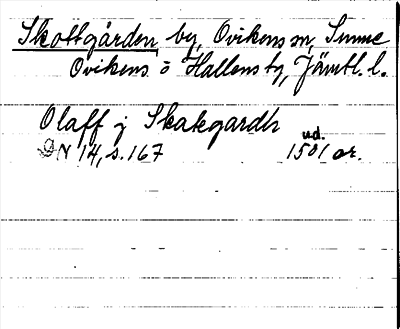 Skottgården, by, Ovikens sn, Sunne
Ovikens o Hallens tg, Jämtl. l.
Olaff j Skakgardh
DN 14, s. 167 1501 ud. or.